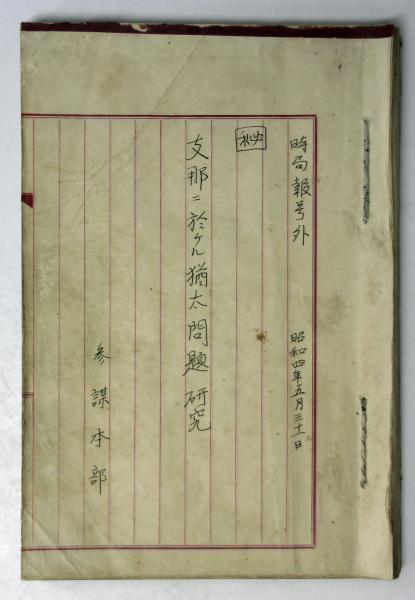 時局報号外
昭和四年五月三十一日
秘
支那ニ於ケル猶太問題研究
参謀本部